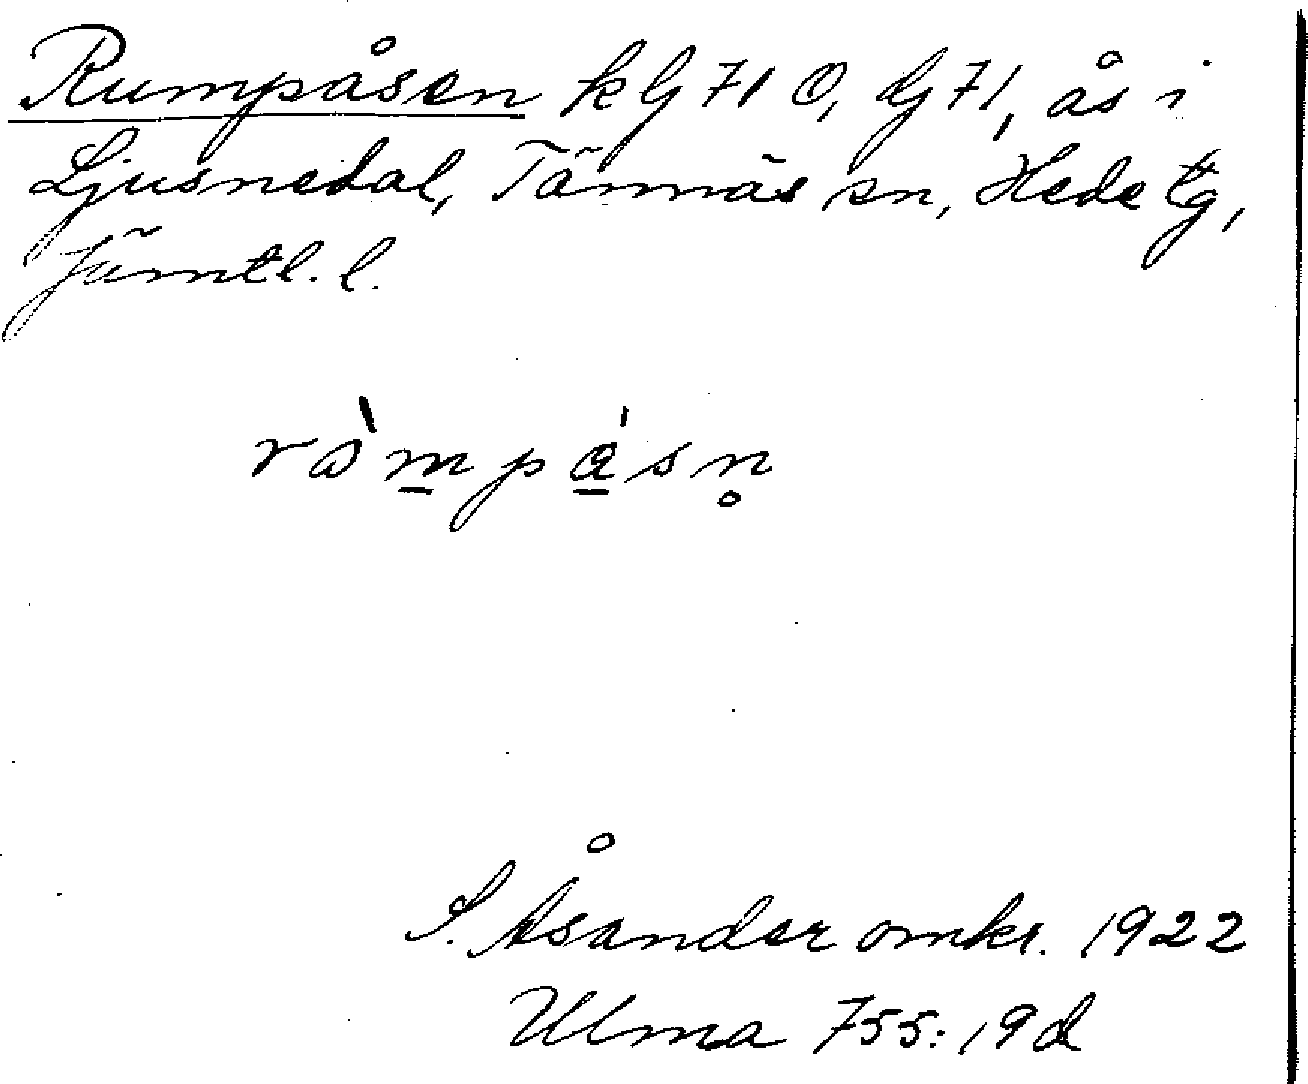 Rumpåsen kbl 71 O, bl 71, ås i
Ljusnedal, Tännäs sn, Hede tg,
Jämtl. l.
ròmpásn̥
S. Åsander omkr. 1922
Ulma 755:19d